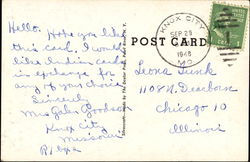 Hello. Hope you like
this card. I would
like Indian card
in exchange for
any of your choice
Sincerely
Mrs Glen Goodson
Knox City
Missouri
POST CARD
KNOX CITY
SEP 23
1948
MO.
1
Leona Funk
1108 N. Dearborn
Chicago 10
Illinois